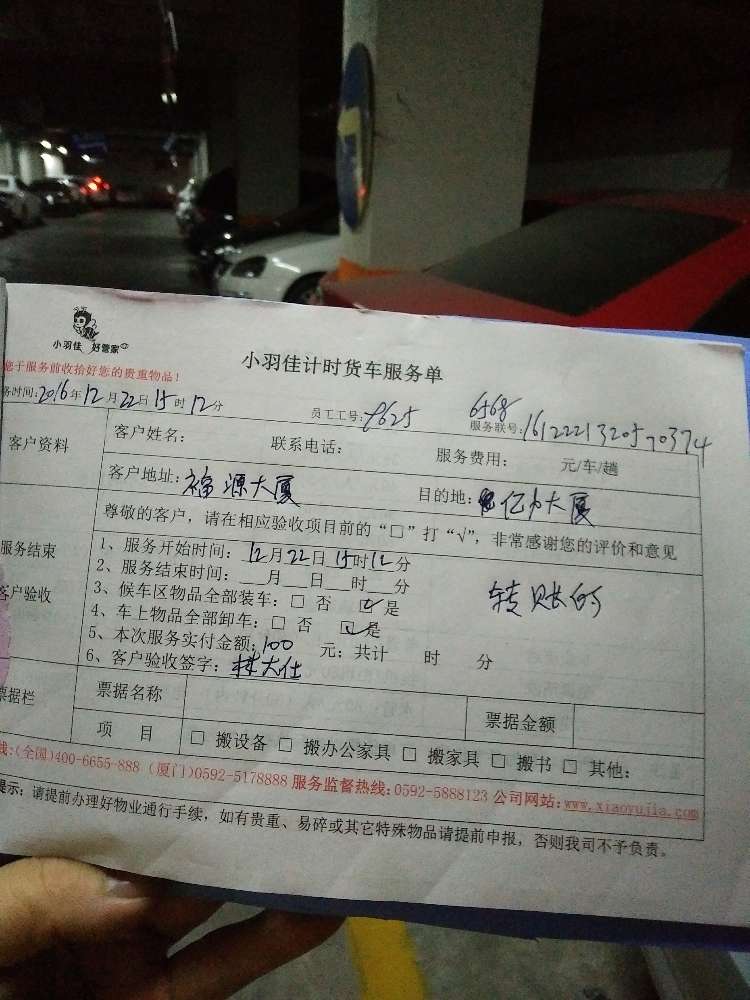 小羽佳 好管家
小羽佳计时货车服务单
您于服务前收拾好您的贵重物品！
务时间：2016年12月22日15时12分 员工工号：8625 服务联号：161222132057 0374
6568
客户资料 客户姓名： 联系电话： 服务费用： 元/车/趟
客户地址：福源大厦 目的地：亿力大厦
服务结束 客户验收 尊敬的客户，请在相应验收项目前的“□”打“√”，非常感谢您的评价和意见
1、服务开始时间：12月22日15时12分
2、服务结束时间：___月___日___时___分
3、候车区物品全部装车：□ 否 ☑ 是
转账的
4、车上物品全部卸车：□ 否 ☑ 是
5、本次服务实付金额：100 元；共计 时 分
6、客户验收签字：林大仕
票据栏 票据名称 票据金额
项 目 □ 搬设备 □ 搬办公家具 □ 搬家具 □ 搬书 □ 其他：
线：(全国)400-6655-888 (厦门)0592-5178888 服务监督热线：0592-5888123 公司网站：www.xiaoyujia.com
提示：请提前办理好物业通行手续，如有贵重、易碎或其它特殊物品请提前申报，否则我司不予负责。